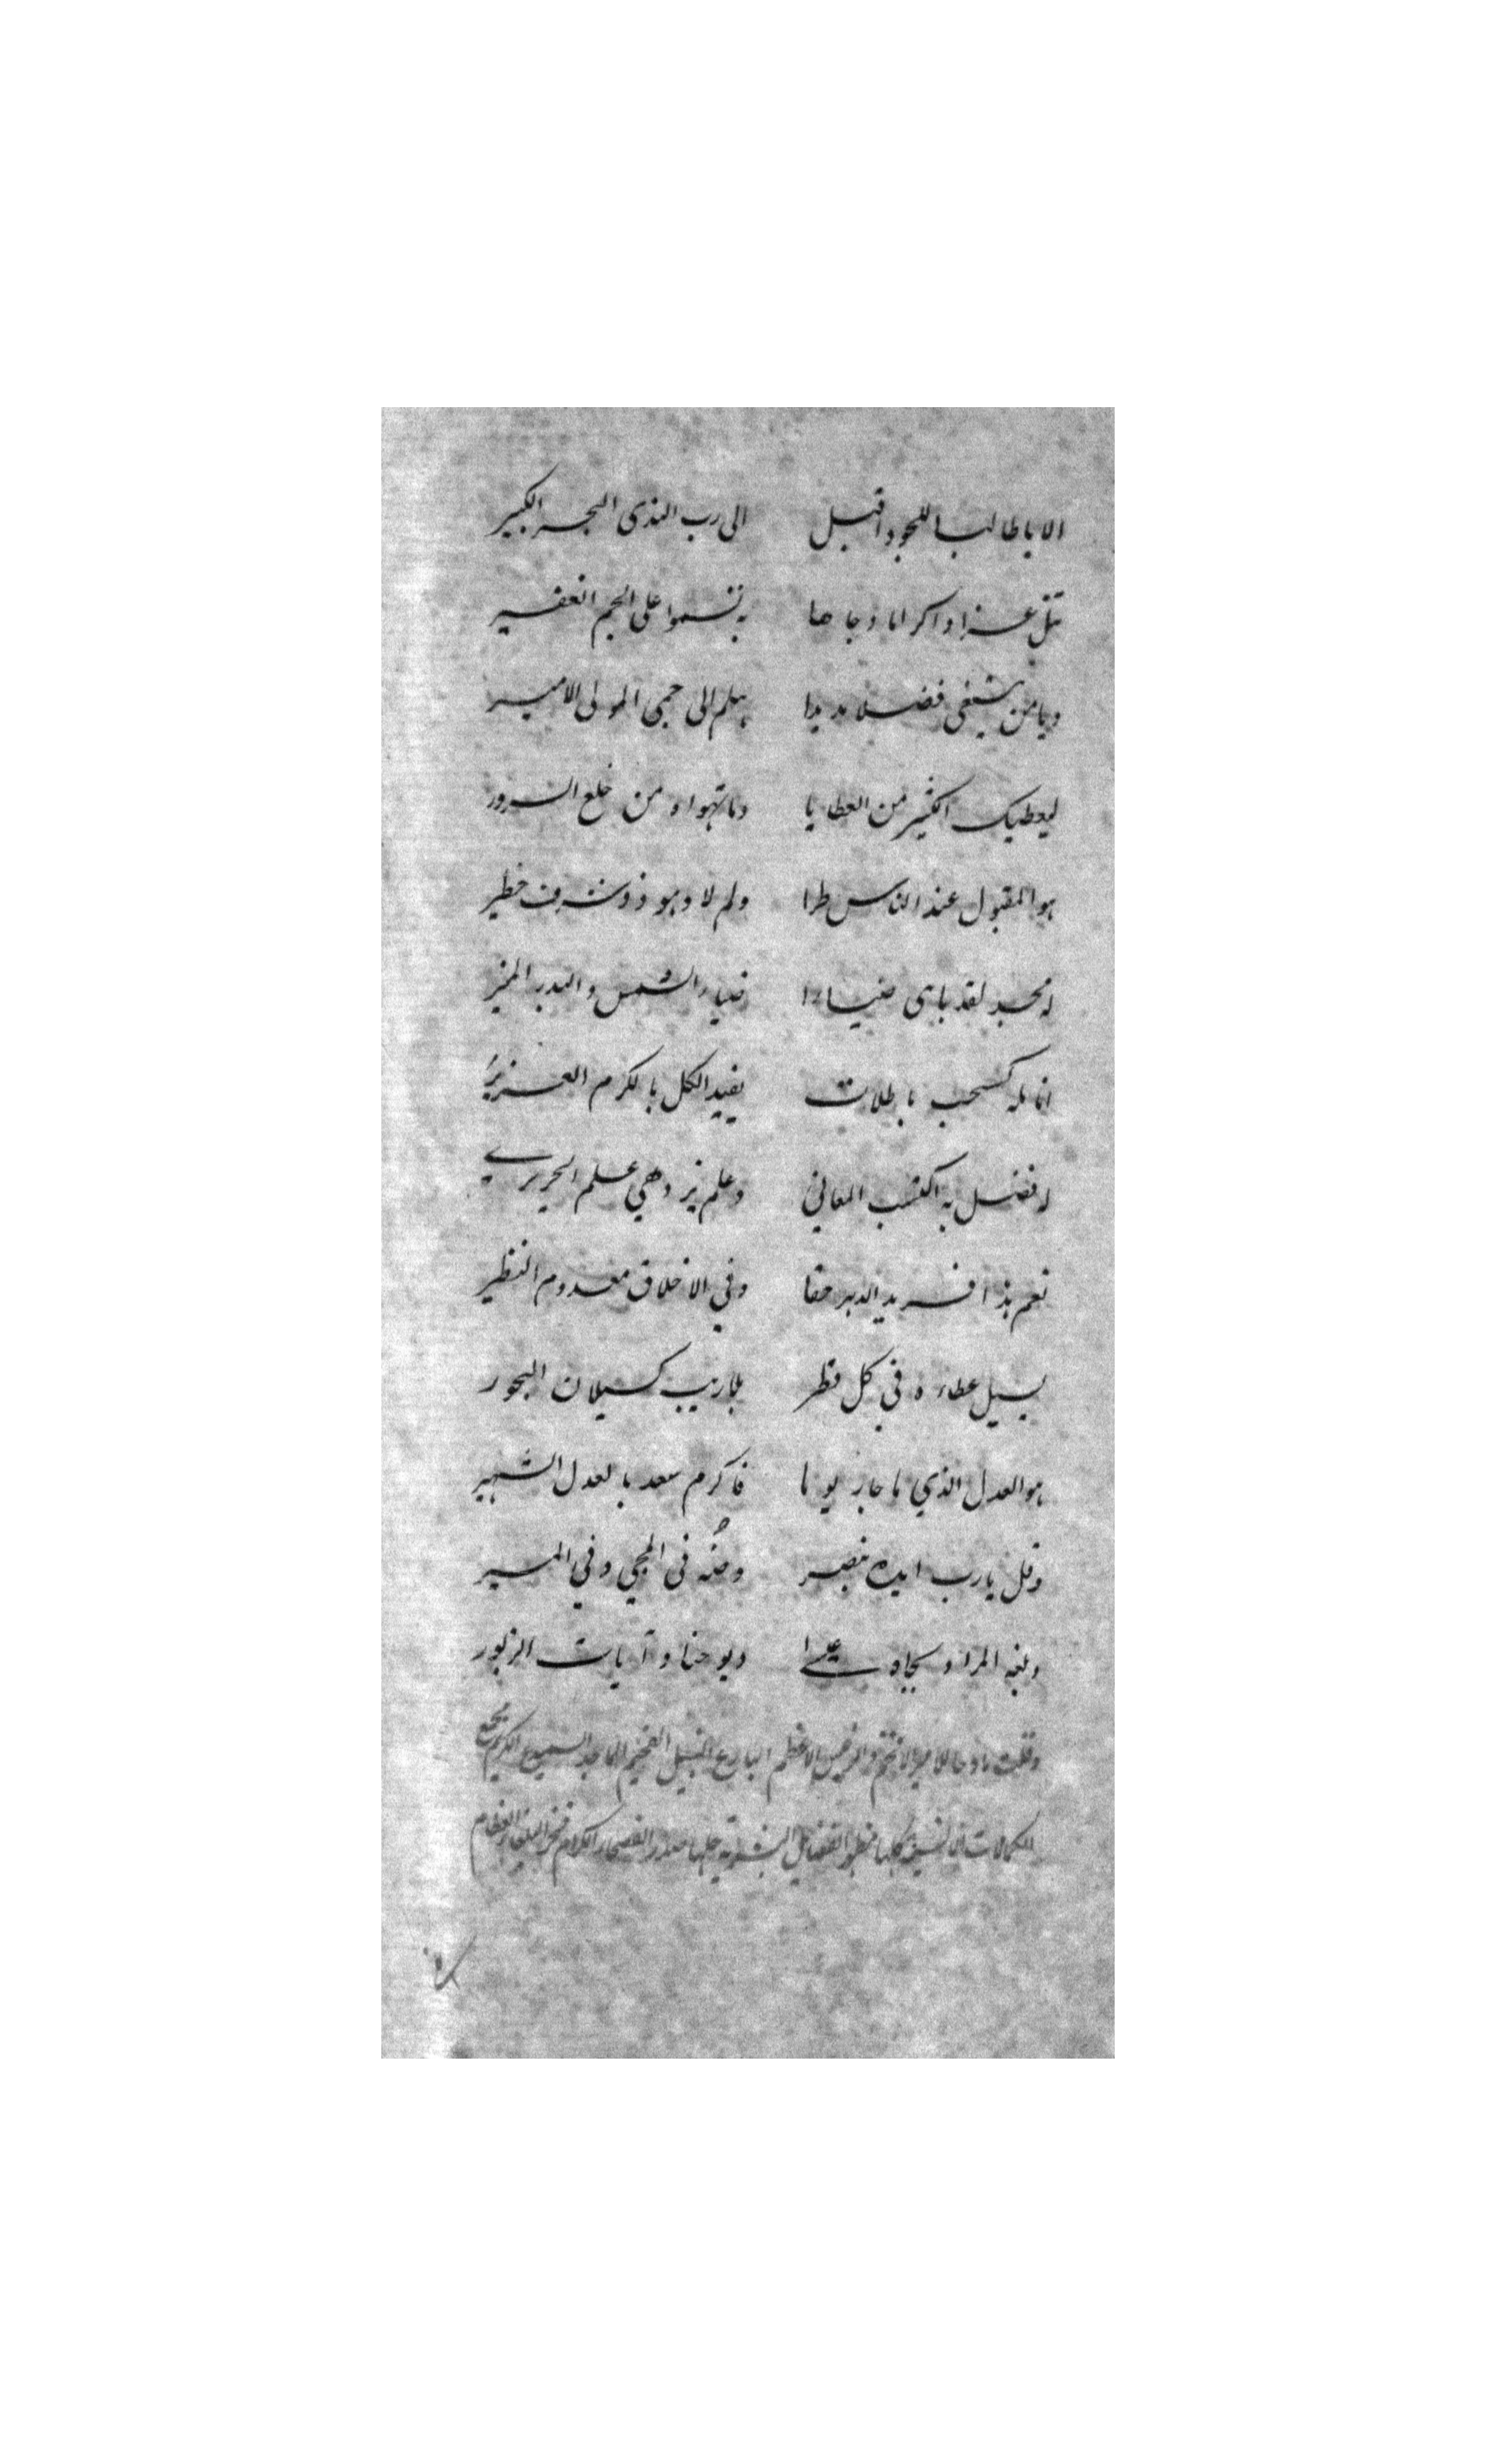 الا يا طالبا للجود اقبل الى رب الندى البحر الكبير
تنل عزا واكراما وجاها به تسموا على الجم الغفير
ويا من يبتغى فضلا مديدا هلم الى حمى المولى الامير
ليعطيك الكثير من العطايا وما تهواه من خلع السرور
هو المقبول عند الناس طرا ولم لا وهو ذو شرف خطير
له مجد لقد باهى ضياءا ضياء الشمس والبدر المنير
انامله كسحب هاطلات يفيد الكل بالكرم الغزير
له فضل به اكتسب المعاني وعلم يزدهي علم الحريرے
نعم هذا فريد الدهر حقا وفي الاخلاق معدوم النظير
يسيل عطاءه في كل قطر بلا ريب كسيلان البحور
هو العدل الذي ما جار يوما فاكرم سعد بالعدل الشهير
وقل يا رب ايده بنصر وصُنه فى المجي وفي المسير
وبلغه المراد بجاه عيسے ويوحنا وآيات الزبور
وقلت مادحا للامير الافخم والرئيس الاعظم البارع النبيل الفخيم الماجد السميدع الكريم مجمع
الكمالات الانسية كلها مظهر الفضايل البشرية جلها مصدر الفصحاء الكرام فخر البلغاء العظام